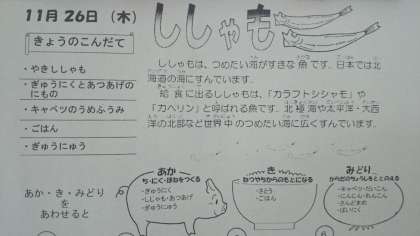 11月26日(木)
きょうのこんだて
・やきししゃも
・ぎゅうにくとあつあげの
にもの
・キャベツのうめふうみ
・ごはん
・ぎゅうにゅう
ししゃも
ししゃもは、つめたい海がすきな魚です。日本では北
海道の海にすんでいます。
給食に出るししゃもは、「カラフトシシャモ」や
「カペリン」と呼ばれる魚です。北極海や太平洋・大西
洋の北部など世界中のつめたい海に広くすんでいます。
あか・き・みどり
を
あわせると
あか
ち・にく・ほねをつくる
・ぎゅうにく
・ししゃも・あつあげ
・ぎゅうにゅう
き
ねつやちからのもとになる
・さとう
・ごはん
みどり
からだのちょうしをととのえる
・キャベツ・だいこん
・にんじん・れんこん
・さんどまめ
・ばいにく